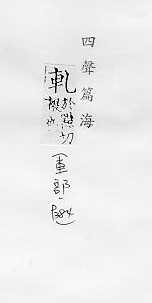 四聲篇海
軋
於黠切
輾也
(車部·1384)